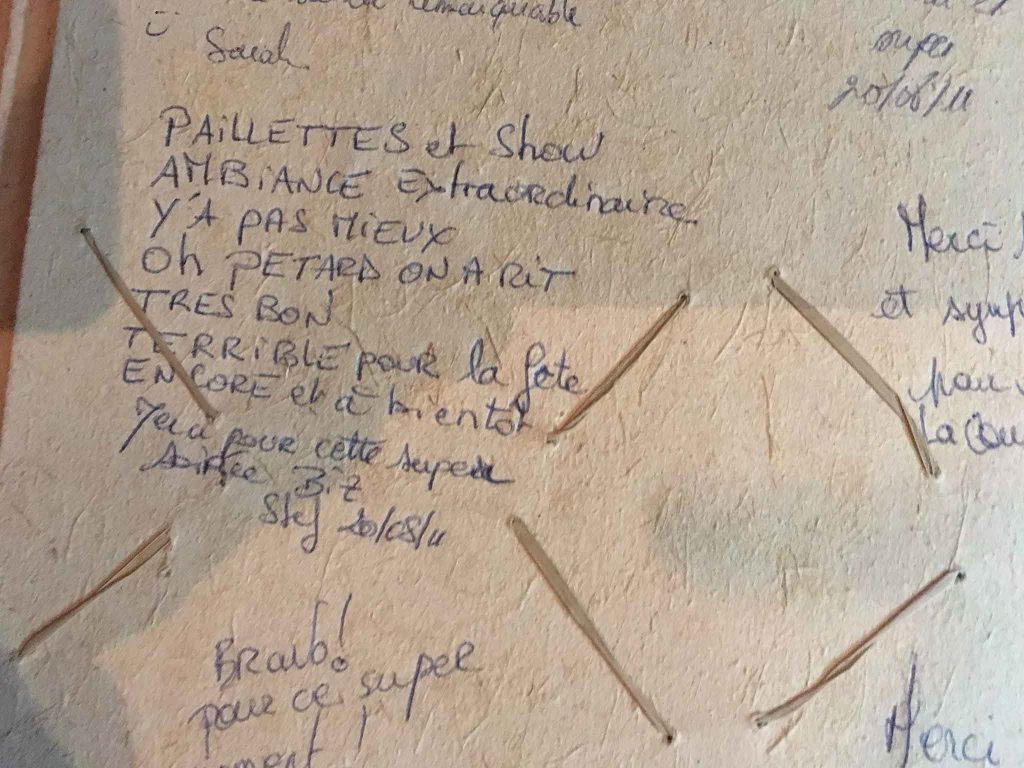 remarquable
Sarah
super
20/08/11
PAILLETTES et Show
AMBIANCE Extraordinaire
Y'A PAS MIEUX
Oh PETARD ON A RIT
TRES BON
TERRIBLE pour la fete
ENCORE et à bientot
pour cette super
Soirée Biz
Stef 20/08/11
Merci
et symp
pour
La Cou
BRavo!
pour ce super
moment !
Merci